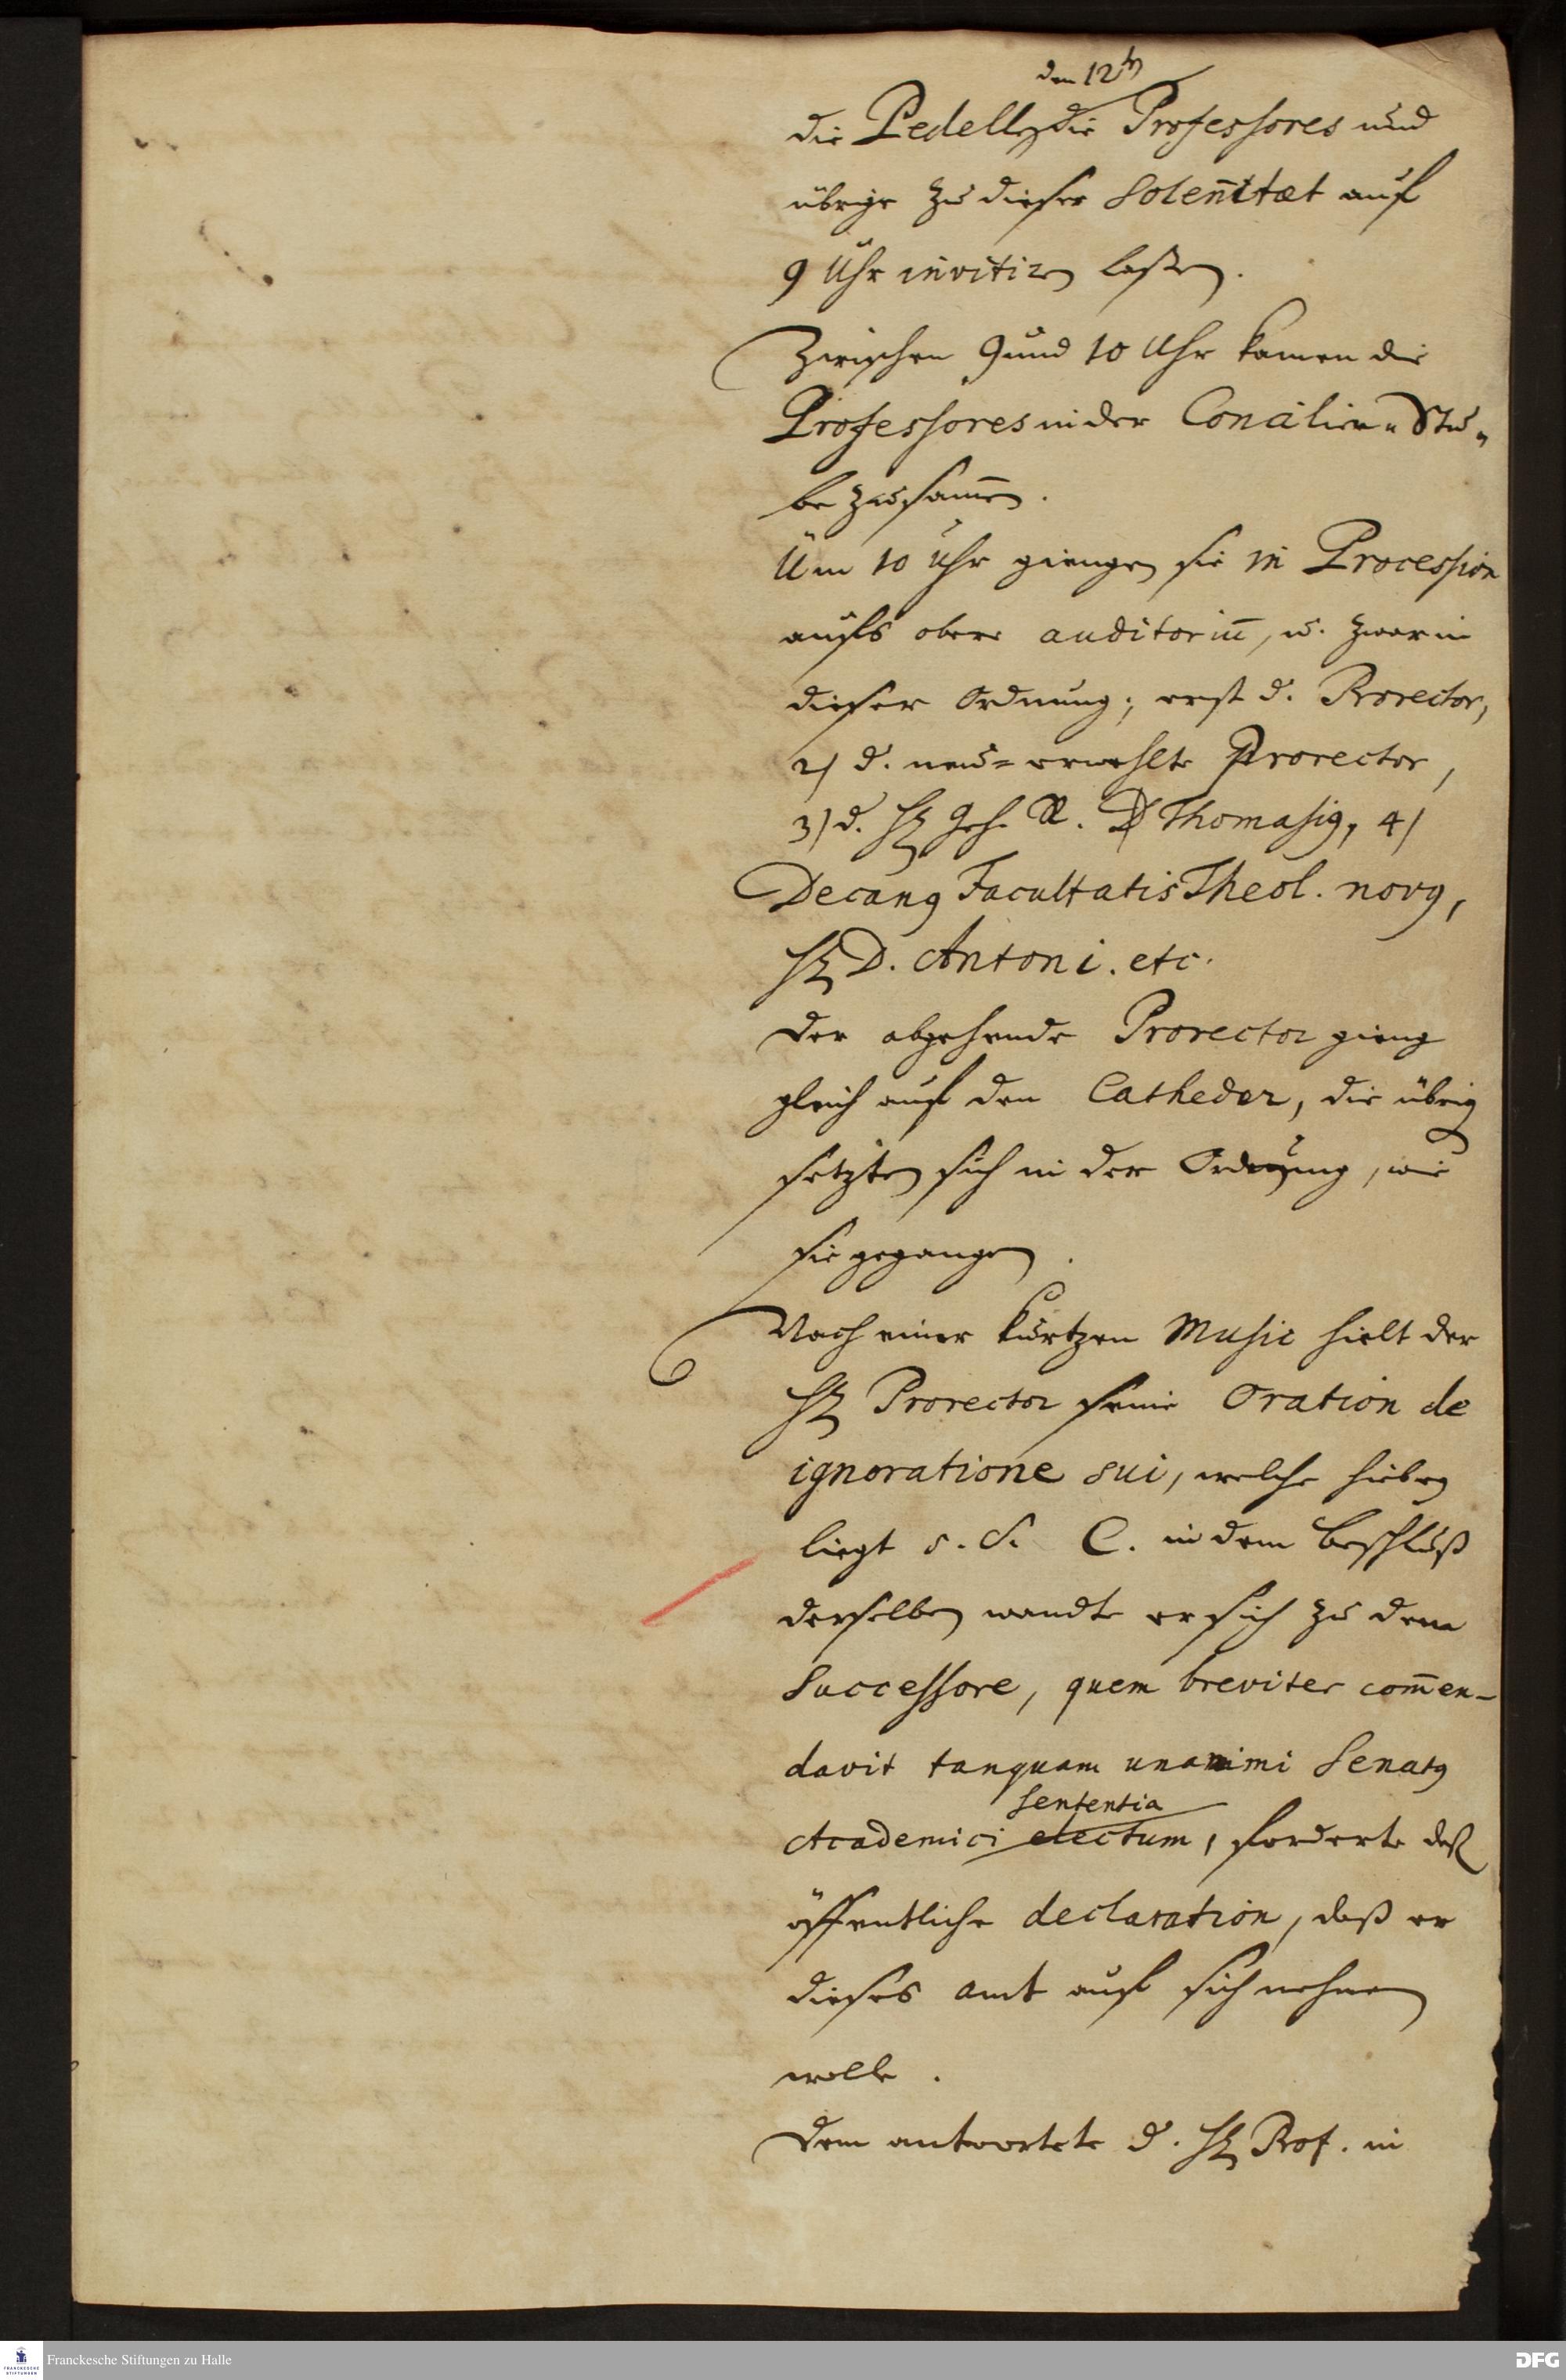 den 12t
die Pedelle, die Professores und
übrige zu dieser Solennitaet auf
9 Uhr invitiren lassen.
Zwischen 9 und 10 Uhr kamen die
Professores in der Concilien-Stu-
be zusammen.
Um 10 Uhr giengen sie in Procession
aufs obere auditorium, u. zwar in
dieser Ordnung; erst d. Prorector,
2) d. neu=erwehlte Prorector,
3) d. H Geh. R. D Thomasius, 4)
Decanus Facultatis Theol. novus,
H D. Antoni. etc.
Der abgehende Prorector gieng
gleich auf den Catheder, die übrig
setzten sich in der Ordnung, wie
sie gegangen.
Nach einer kurtzen Music hielt der
H Prorector seine Oration de
ignoratione sui, welche hiebey
liegt s. S. C. in dem Beschluß
derselben wandte er sich zu dem
Successore, quem breviter com̄en-
davit tanquam unanimi Senatus
sententia
Academici electum, forderte deß
öffentliche declaration, daß er
dieses amt auf sich nehmen
wolle.
Dem antwortete d. H Prof. in
Franckesche Stiftungen zu Halle
FRANCKESCHE
STIFTUNGEN
DFG